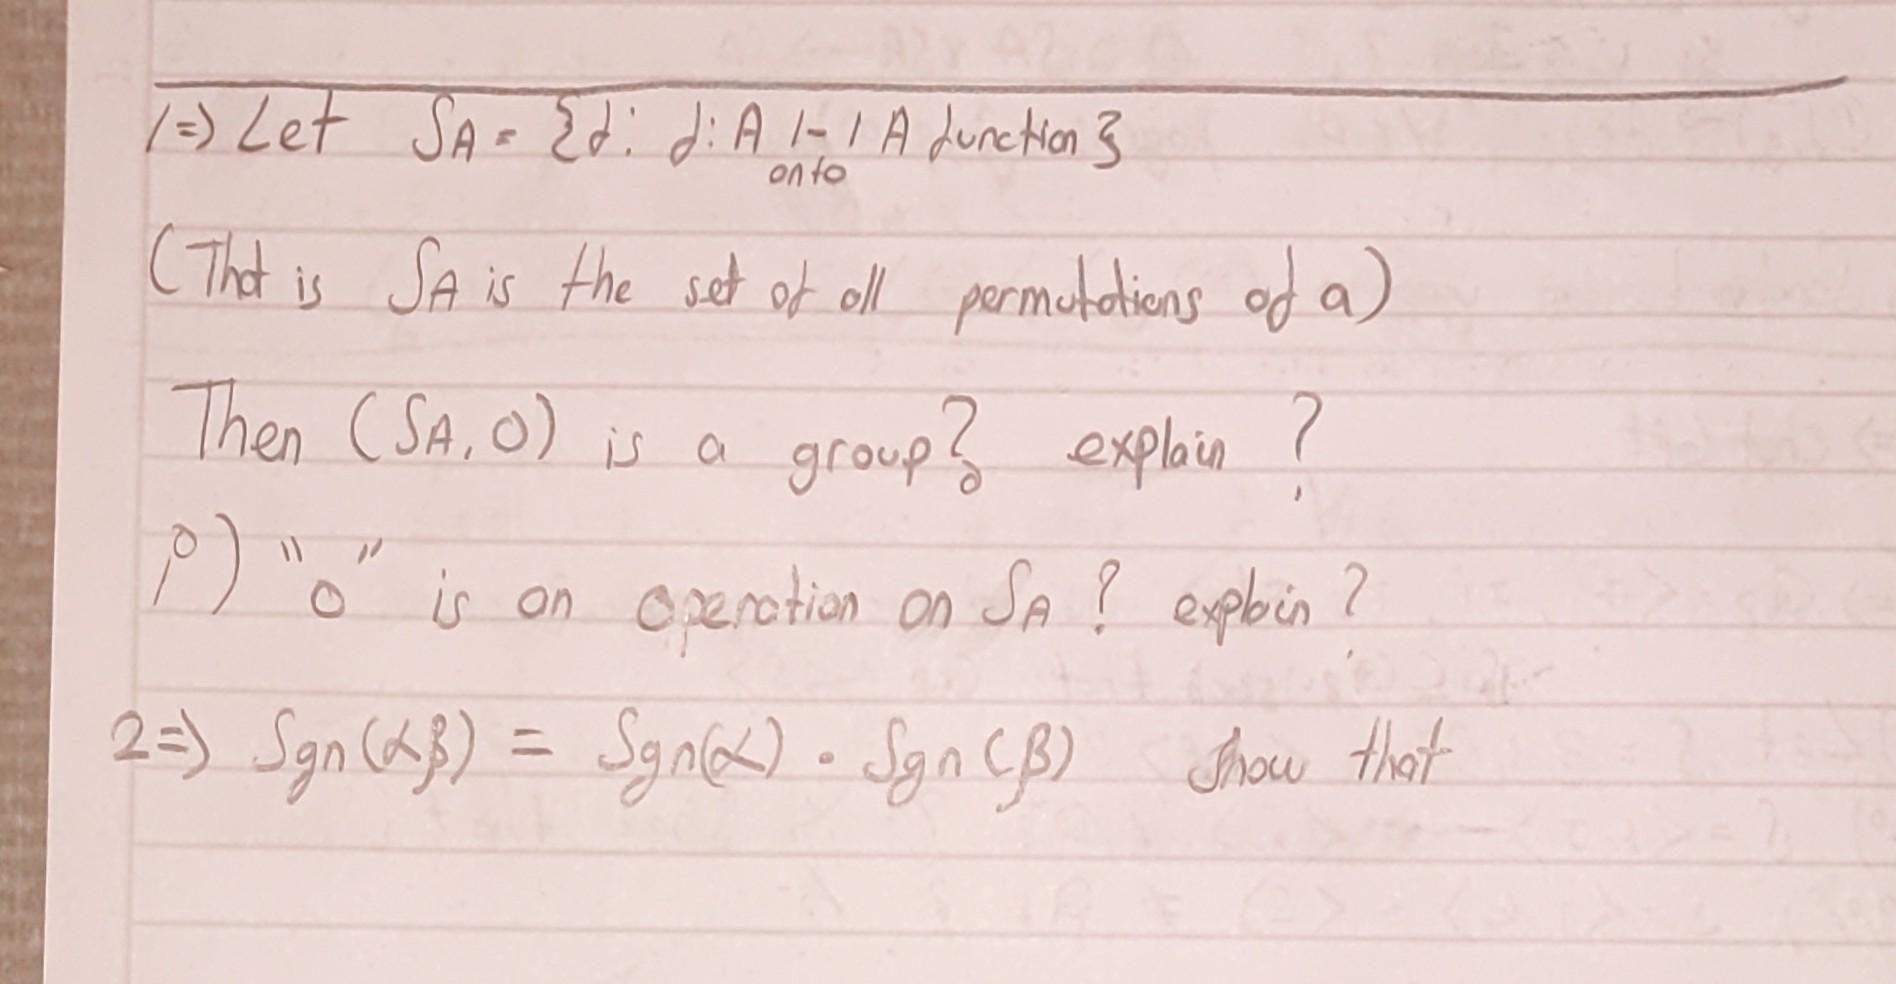 1⇒ Let SA = {f: f: A 1-1 A function}
onto
(That is SA is the set of all permutations of a)
Then (SA, o) is a group? explain?
i) "o" is an operation on SA? explain?
2⇒ Sgn(αβ) = Sgn(α) . Sgn(β) show that